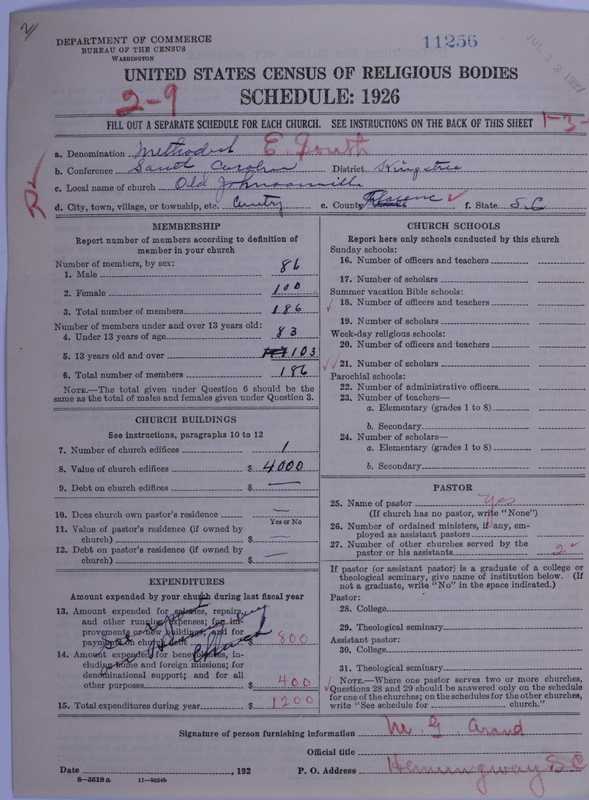 DEPARTMENT OF COMMERCE
BUREAU OF THE CENSUS
WASHINGTON
11256
UNITED STATES CENSUS OF RELIGIOUS BODIES
SCHEDULE: 1926
2-9
FILL OUT A SEPARATE SCHEDULE FOR EACH CHURCH. SEE INSTRUCTIONS ON THE BACK OF THIS SHEET
1-3-
a. Denomination Methodist E. South
b. Conference South Carolina District Kingstree
c. Local name of church Old Johnsonville
d. City, town, village, or township, etc. County e. County Florence f. State S.C
MEMBERSHIP
Report number of members according to definition of
member in your church
Number of members, by sex:
1. Male 86
2. Female 100
3. Total number of members 186
Number of members under and over 13 years old:
4. Under 13 years of age 83
5. 13 years old and over 103
6. Total number of members 186
NOTE.—The total given under Question 6 should be the
same as the total of males and females given under Question 3.
CHURCH BUILDINGS
See instructions, paragraphs 10 to 12
7. Number of church edifices 1
8. Value of church edifices $ 4000
9. Debt on church edifices $ —
10. Does church own pastor's residence —
Yes or No
11. Value of pastor's residence (if owned by
church) $ —
12. Debt on pastor's residence (if owned by
church) $ —
EXPENDITURES
Amount expended by your church during last fiscal year
13. Amount expended for salaries, repairs,
and other running expenses; for im-
provements or new buildings; and for
payments on church debt $ 800
See report
on Hemingway
Church
14. Amount expended for benevolences, in-
cluding home and foreign missions; for
denominational support; and for all
other purposes $ 400
15. Total expenditures during year $ 1200
CHURCH SCHOOLS
Report here only schools conducted by this church
Sunday schools:
16. Number of officers and teachers
17. Number of scholars
Summer vacation Bible schools:
18. Number of officers and teachers
19. Number of scholars
Week-day religious schools:
20. Number of officers and teachers
21. Number of scholars
Parochial schools:
22. Number of administrative officers
23. Number of teachers—
a. Elementary (grades 1 to 8)
b. Secondary
24. Number of scholars—
a. Elementary (grades 1 to 8)
b. Secondary
PASTOR
25. Name of pastor Yes
(If church has no pastor, write "None")
26. Number of ordained ministers, if any, em-
ployed as assistant pastors
27. Number of other churches served by the
pastor or his assistants 2
If pastor (or assistant pastor) is a graduate of a college or
theological seminary, give name of institution below. (If
not a graduate, write "No" in the space indicated.)
Pastor:
28. College
29. Theological seminary
Assistant pastor:
30. College
31. Theological seminary
NOTE.—Where one pastor serves two or more churches,
Questions 28 and 29 should be answered only on the schedule
for one of the churches; on the schedules for the other churches,
write "See schedule for church."
Signature of person furnishing information M. G. Arand
Official title
Date , 192 P. O. Address Hemingway S.C
8—5518 a 11—9054b